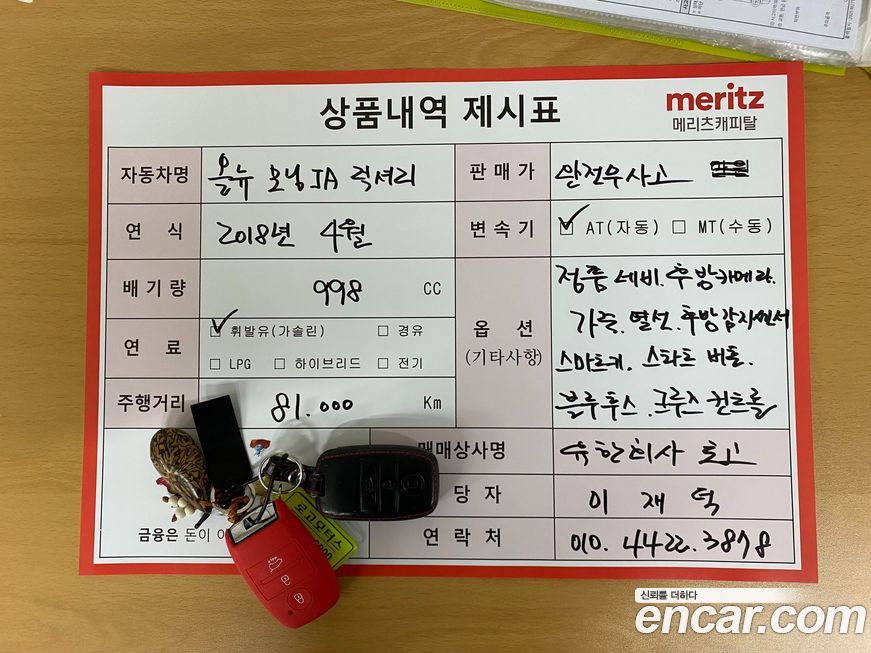 상품내역 제시표
meritz
메리츠캐피탈
자동차명 올뉴 모닝JA 럭셔리
판매가 완전무사고
연 식 2018년 4월
변속기 ☑ AT(자동) □ MT(수동)
배기량 998 CC
옵 션
(기타사항)
정품 네비. 후방카메라.
가죽. 열선. 후방감지센서
스마트키. 스타트 버튼.
블루투스. 크루즈 컨트롤
연 료 ☑ 휘발유(가솔린) □ 경유
□ LPG □ 하이브리드 □ 전기
주행거리 81.000 Km
매매상사명 유한회사 로고
당 자 이 재 덕
연 락 처 010. 4422. 3878
금융은 돈이 이
로고모터스
신뢰를 더하다
encar.com